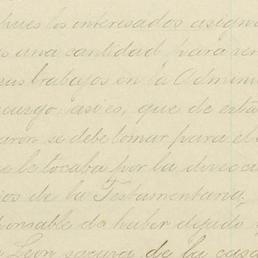 pues los interesados asign
una cantidad para rem
sus trabajos en la Admini
cargo, asi es, que de esta
aron se debe tomar para el
le tocaba por la direcci
ios de la Testamentaria.
ponsable de haber dejado
Leon sacara de la casa